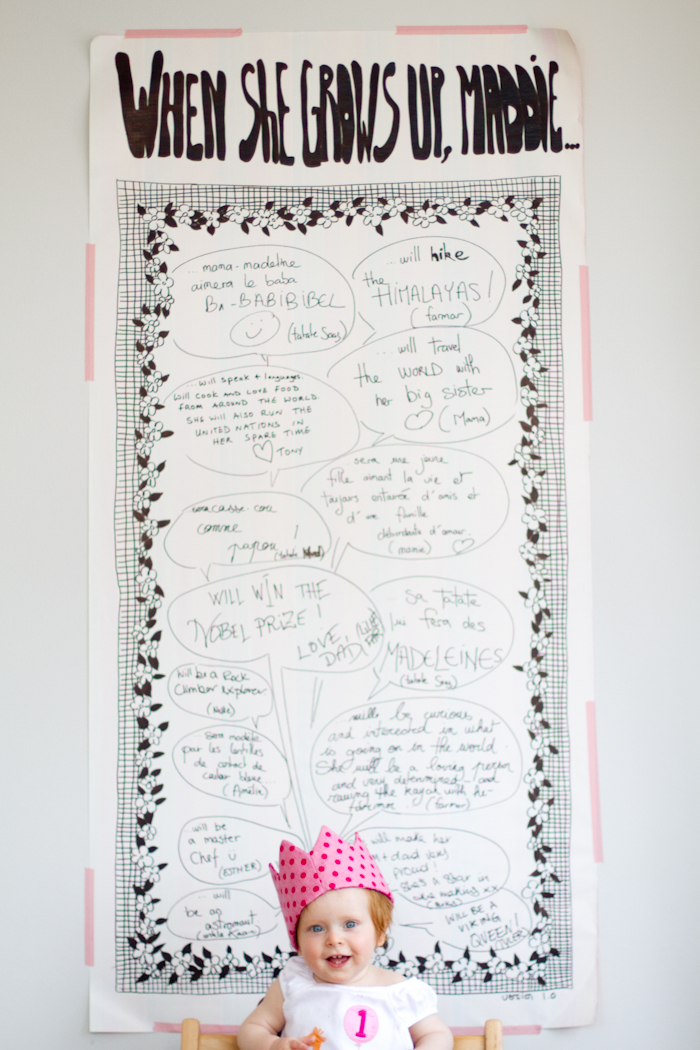 WHEN SHE GROWS UP, MADDIE...
...mama-madeline
aimera le baba
BA-BABIBIBEL
(tatate Saas)
...will hike
the
HIMALAYAS!
(farmar)
...will travel
the WORLD with
her big sister
(Mama)
...will speak 4 languages.
WILL COOK AND LOVE FOOD
FROM AROUND THE WORLD
SHE WILL ALSO RUN THE
UNITED NATIONS IN
HER SPARE TIME
TONY
sera une jeune
fille aimant la vie et
toujours entourée d'amis et
d'une famille
débordante d'amour.
(mamie)
sera casse-cou
comme
papou!
WILL WIN THE
NOBEL PRIZE!
LOVE,
DAD
...Sa tatate
lui fera des
MADELEINES
(tatate Saas)
Will be a Rock
Climber explorer
Sera modèle
par les lentilles
de contact de
couleur bleue...
(Amélia)
...will be curious
and interested in what
is going on in the world.
She will be a loving person
and very determined - and
raising the kayak with he-
(farmor)
...will be
a master
Chef ü
(ESTHER)
...will make her
mum + dad very
proud!
she's a star in
the making xx
...will
be an
astronaut
WILL BE A
VIKING
QUEEN!
1
version 1.0